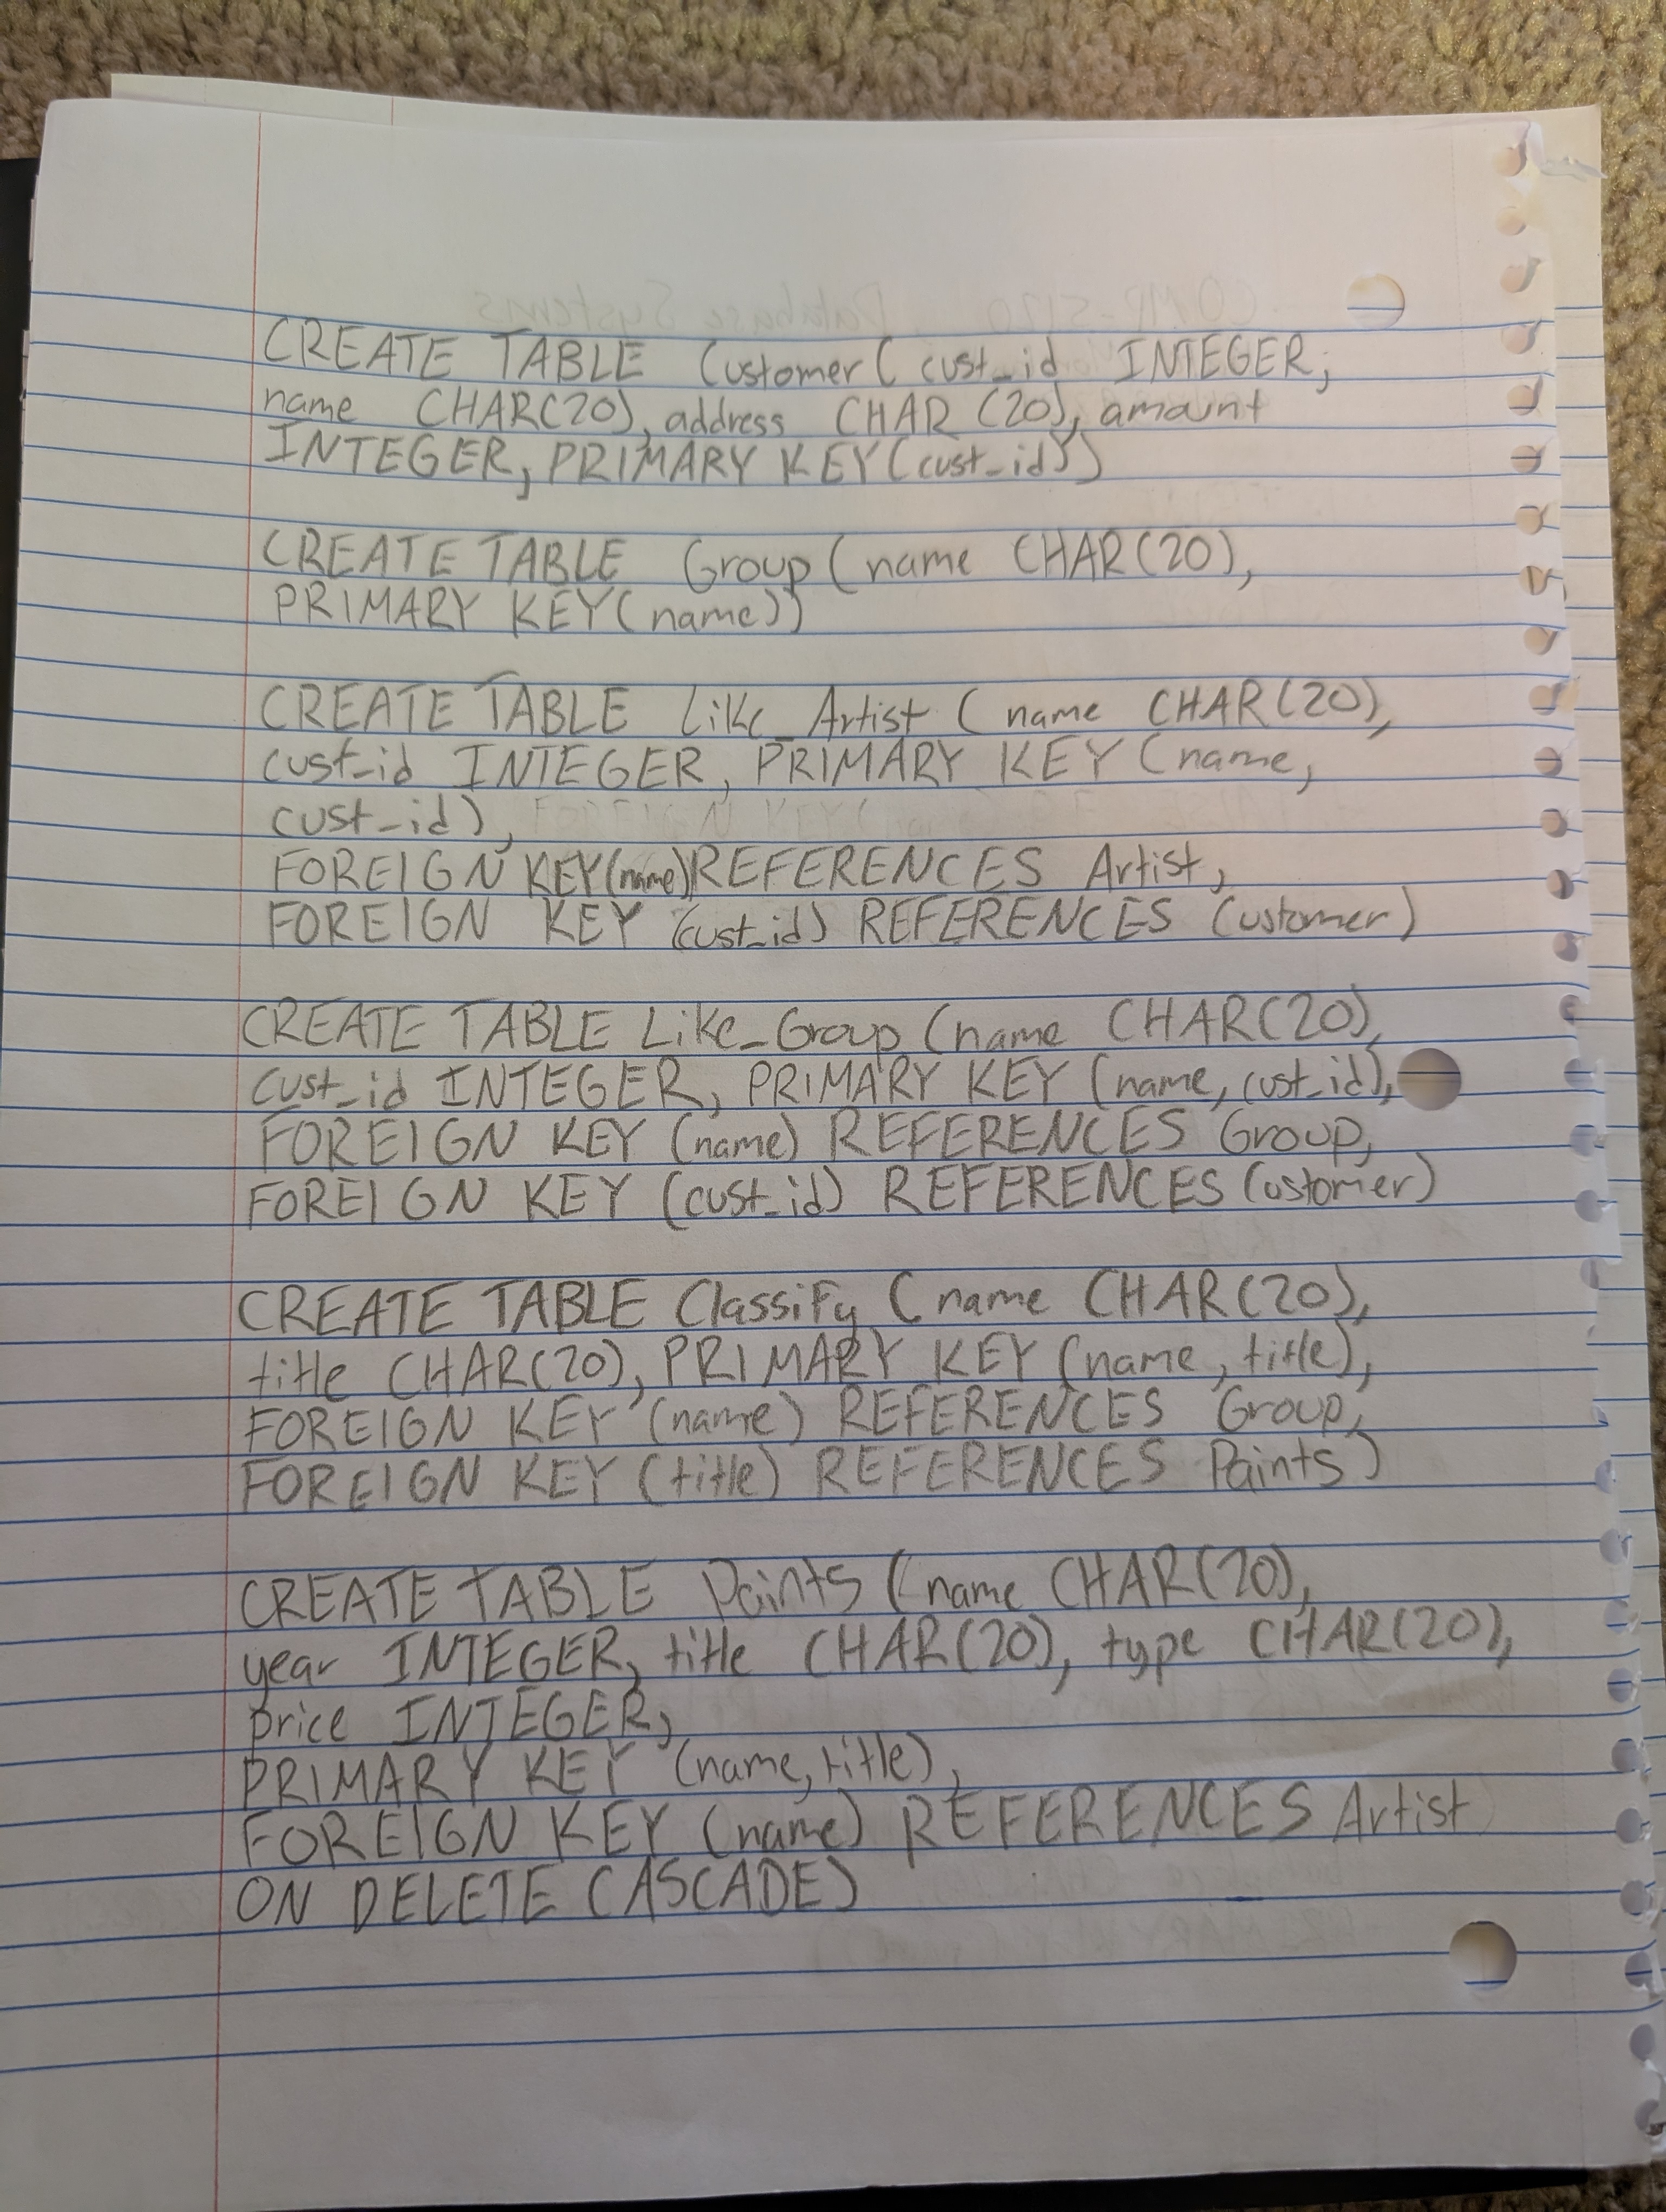 CREATE TABLE Customer( cust_id INTEGER,
name CHAR(20), address CHAR (20), amount
INTEGER, PRIMARY KEY(cust_id))
CREATE TABLE Group( name CHAR(20),
PRIMARY KEY(name))
CREATE TABLE Like_Artist ( name CHAR(20),
cust_id INTEGER, PRIMARY KEY (name,
cust_id),
FOREIGN KEY(name)REFERENCES Artist,
FOREIGN KEY (cust_id) REFERENCES Customer)
CREATE TABLE Like_Group (name CHAR(20),
cust_id INTEGER, PRIMARY KEY (name, cust_id),
FOREIGN KEY (name) REFERENCES Group,
FOREIGN KEY (cust_id) REFERENCES Customer)
CREATE TABLE Classify ( name CHAR(20),
title CHAR(20), PRIMARY KEY (name, title),
FOREIGN KEY (name) REFERENCES Group,
FOREIGN KEY (title) REFERENCES Paints)
CREATE TABLE Paints ( name CHAR(20),
year INTEGER, title CHAR(20), type CHAR(20),
price INTEGER,
PRIMARY KEY (name, title),
FOREIGN KEY (name) REFERENCES Artist
ON DELETE CASCADE)